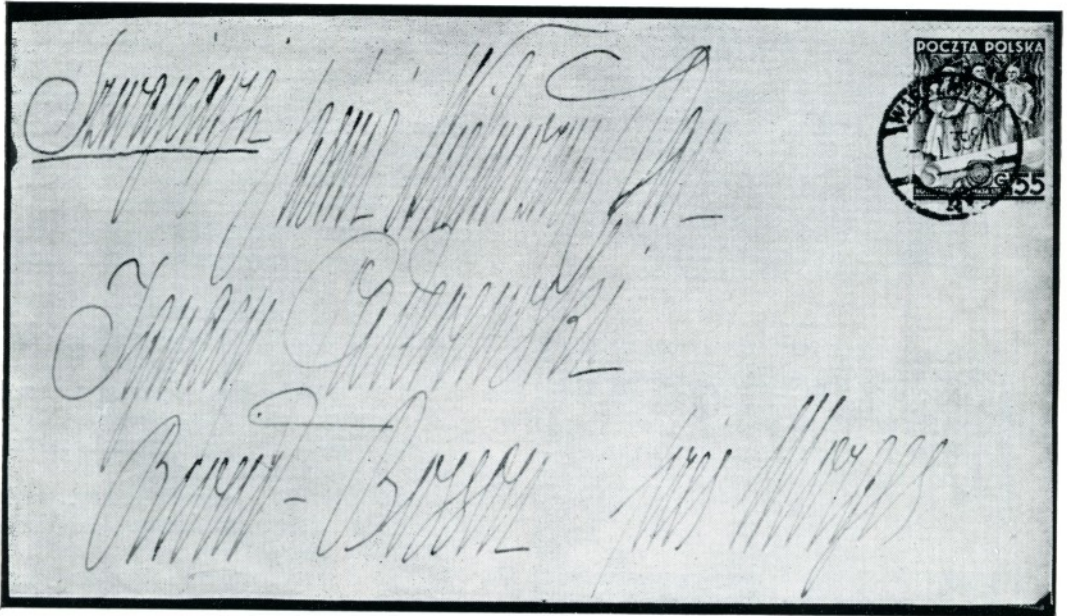 POCZTA POLSKA
Szwajcaria Jaśnie Wielmożny Pan
WARSZAWA
55
Ignacy Paderewski
Riond-Bosson près Morges